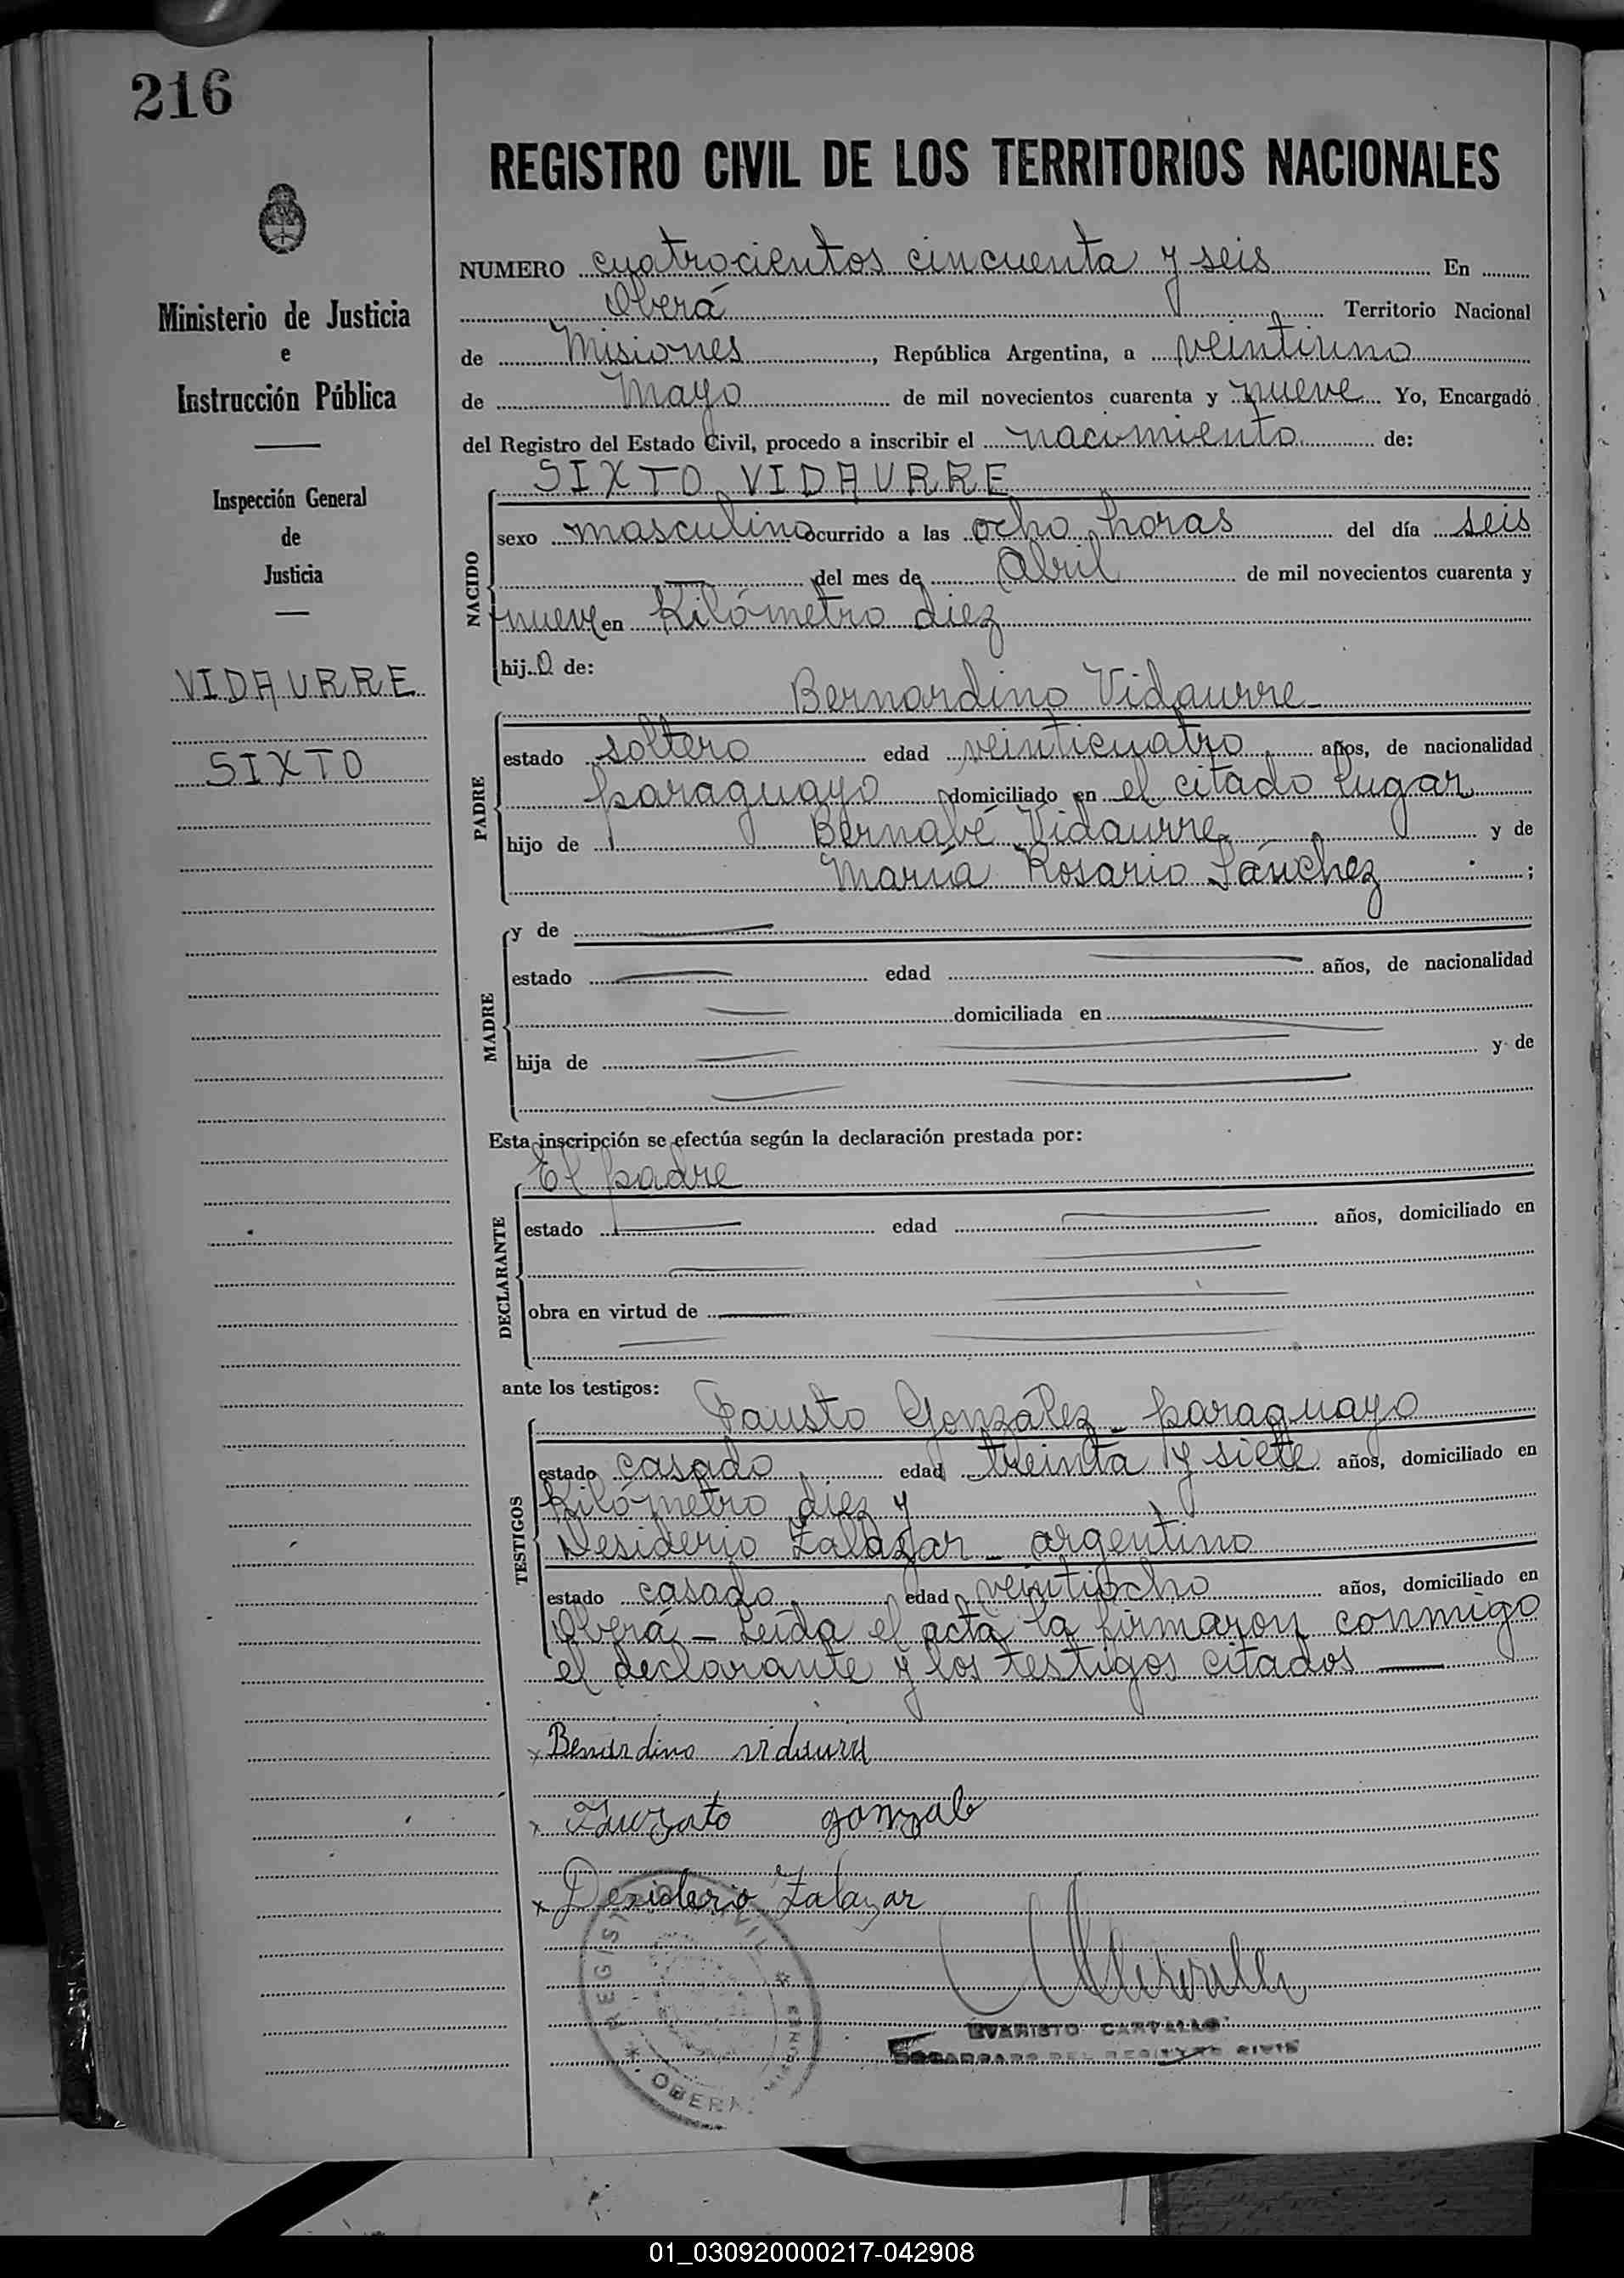 216
REGISTRO CIVIL DE LOS TERRITORIOS NACIONALES
Ministerio de Justicia
e
Instrucción Pública
Inspección General
de
Justicia
VIDAURRE
SIXTO
NUMERO cuatrocientos cincuenta y seis En
Oberá Territorio Nacional
de Misiones, República Argentina, a veintiuno
de Mayo de mil novecientos cuarenta y nueve Yo, Encargado
del Registro del Estado Civil, procedo a inscribir el nacimiento de:
SIXTO VIDAURRE
NACIDO
sexo masculino ocurrido a las ocho horas del día seis
— del mes de Abril de mil novecientos cuarenta y
nueve en Kilómetro diez
hijo de:
Bernardino Vidaurre -
PADRE
estado soltero edad veinticuatro años, de nacionalidad
paraguayo domiciliado en el citado lugar
hijo de Bernabé Vidaurre y de
María Rosario Sánchez ;
MADRE
y de —
estado — edad — años, de nacionalidad
— domiciliada en —
hija de — y de
—
Esta inscripción se efectúa según la declaración prestada por:
El padre
DECLARANTE
estado — edad — años, domiciliado en
—
obra en virtud de —
—
ante los testigos:
Fausto González - paraguayo
TESTIGOS
estado casado edad treinta y siete años, domiciliado en
Kilómetro diez y
Desiderio Zalazar - argentino
estado casado edad veintiocho años, domiciliado en
Oberá - Leída el acta la firmaron conmigo
el declarante y los testigos citados —
x Benardino vidaurre
x gonzale
x Desiderio Zalazar
REGISTRO CIVIL
OBERA
MISIONES
EVARISTO CARVALLO
ENCARGADO DEL REGISTRO CIVIL
01_030920000217-042908